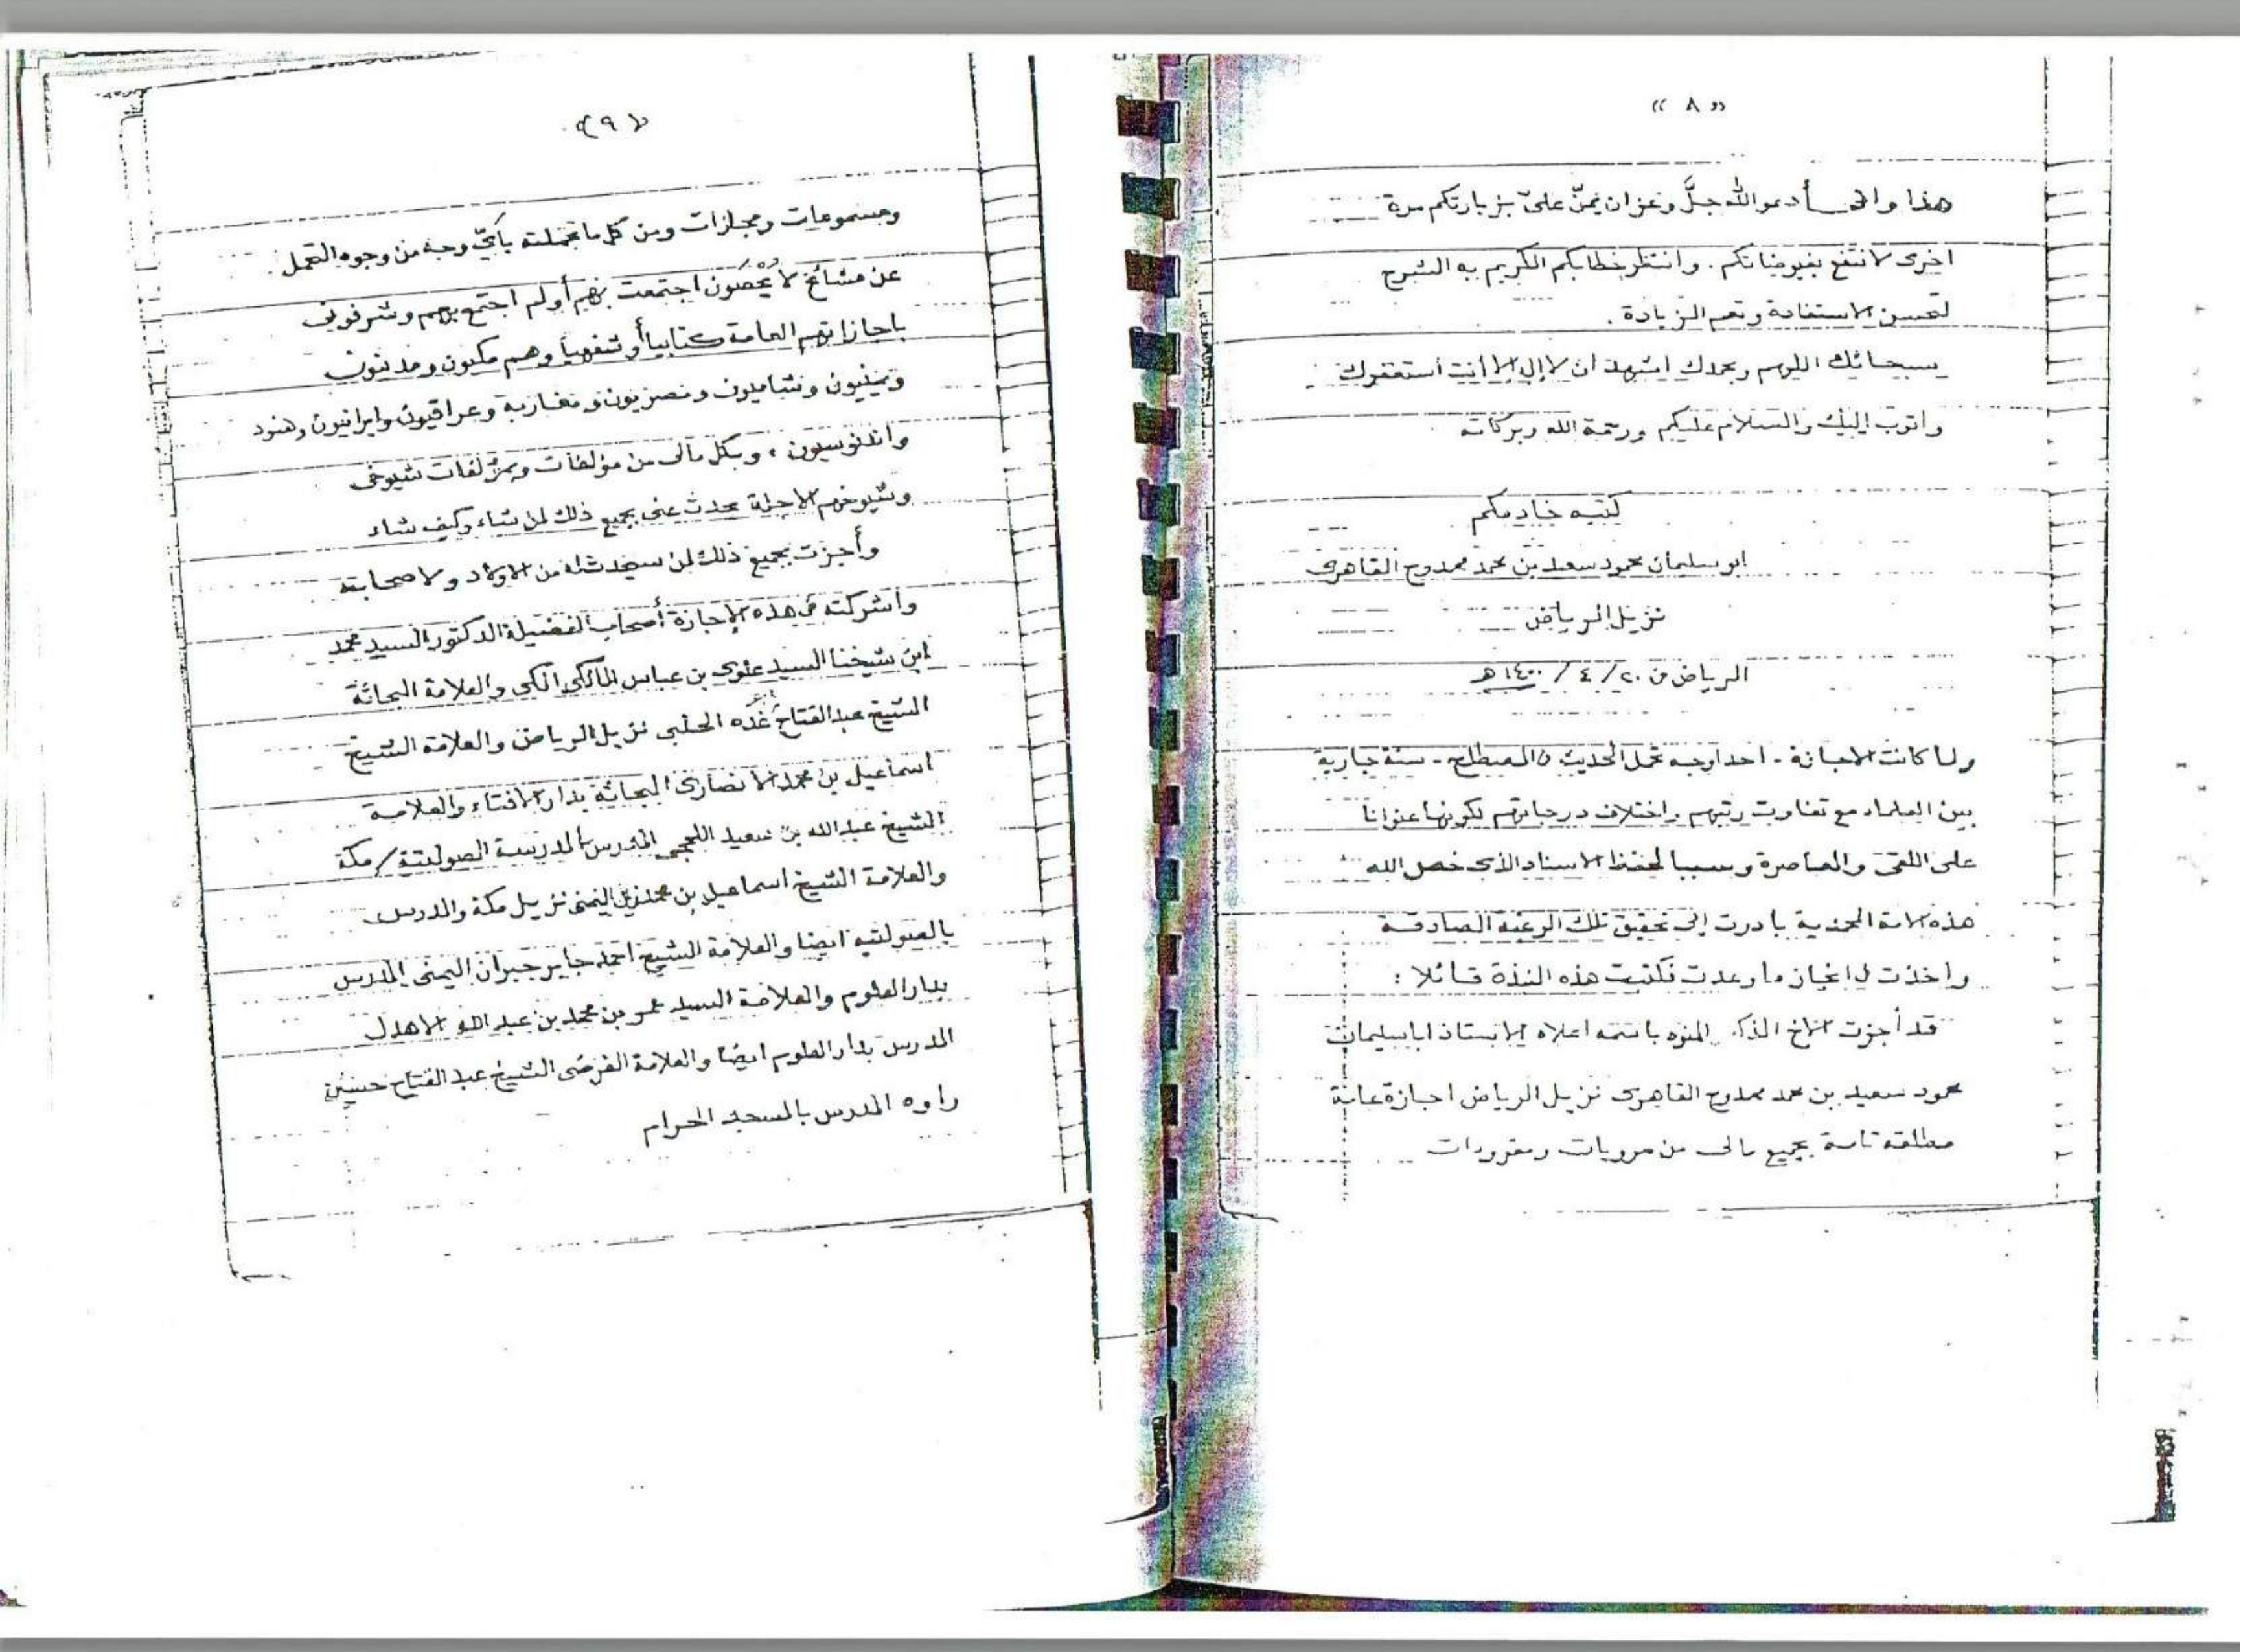 « ٨ »
هذا وانى أدعو الله جلَّ وعز ان يمنّ علىّ بزيارتكم مرة
اخرى لانتفع بفيوضاتكم . وانتظر خطابكم الكريم به الشرح
لتحسن الاستفادة وتعم الزيادة .
سبحانك اللهم وبحمدك اشهد ان لا إله إلا أنت أستغفرك
واتوب إليك والسلام عليكم ورحمة الله وبركاته
كتبه خادمكم
ابو سليمان محمود سعيد بن محمد ممدوح القاهرى
نزيل الرياض
الرياض فى ٢٠ / ٤ / ١٤٠٠ هـ
ولما كانت الاجازة - احد اوجه تحمل الحديث فى المصطلح - سنة جارية
بين العلماء مع تفاوت رتبهم واختلاف درجاتهم لكونها عنوانا
على اللقى والمعاصرة وسببا لحفظ الاسناد الذى خص الله
هذه الامة المحمدية بادرت إلى تحقيق تلك الرغبة الصادقة
واخذت فى انجاز ما وعدت فكتبت هذه النبذة قائلا :
قد أجزت الاخ المنوه باسمه اعلاه الاستاذ ابا سليمان
محمود سعيد بن محمد ممدوح القاهرى نزيل الرياض اجازة عامة
مطلقه تامة بجميع مالى من مرويات ومقروءات
« ٩ »
ومسموعات ومجازات ومن كل ما تحملته بأيّ وجه من وجوه التحمل .
عن مشائخ لا يُحْصَون اجتمعت بهم أو لم اجتمع بهم وشرفونى
باجازاتهم العامة كتابيا أو شفهيا وهم مكيون ومدنيون
ويمنيون وشاميون ومصريون ومغاربة وعراقيون وايرانيون وهنود
واندنوسيون ، وبكل مالى من مؤلفات وبمؤلفات شيوخى
وشيوخهم الاجلة يحدث عنى بجميع ذلك لمن شاء وكيف شاء
وأجزت بجميع ذلك لمن سيحدث له من الاولاد ولاصحابه
واشركته فى هذه الإجازة أصحاب الفضيلة الدكتور السيد محمد
ابن شيخنا السيد علوى بن عباس المالكى المكى والعلامة البحاثة
الشيخ عبد الفتاح أبو غُدَّه الحلبى نزيل الرياض والعلامة الشيخ
اسماعيل بن محمد الانصارى البحاثة بدار الافتاء والعلامة
الشيخ عبد الله بن سعيد اللحجى المدرس بالمدرسة الصولتية / مكة
والعلامة الشيخ اسماعيل بن محمد زين اليمنى نزيل مكة والمدرس
بالصولتيه ايضا والعلامة الشيخ احمد جابر جبران اليمنى المدرس
بدار العلوم والعلامة السيد عمر بن محمد بن عبد الله الاهدل
المدرس بدار العلوم ايضا والعلامة الفرضى الشيخ عبد الفتاح حسين
راوه المدرس بالمسجد الحرام